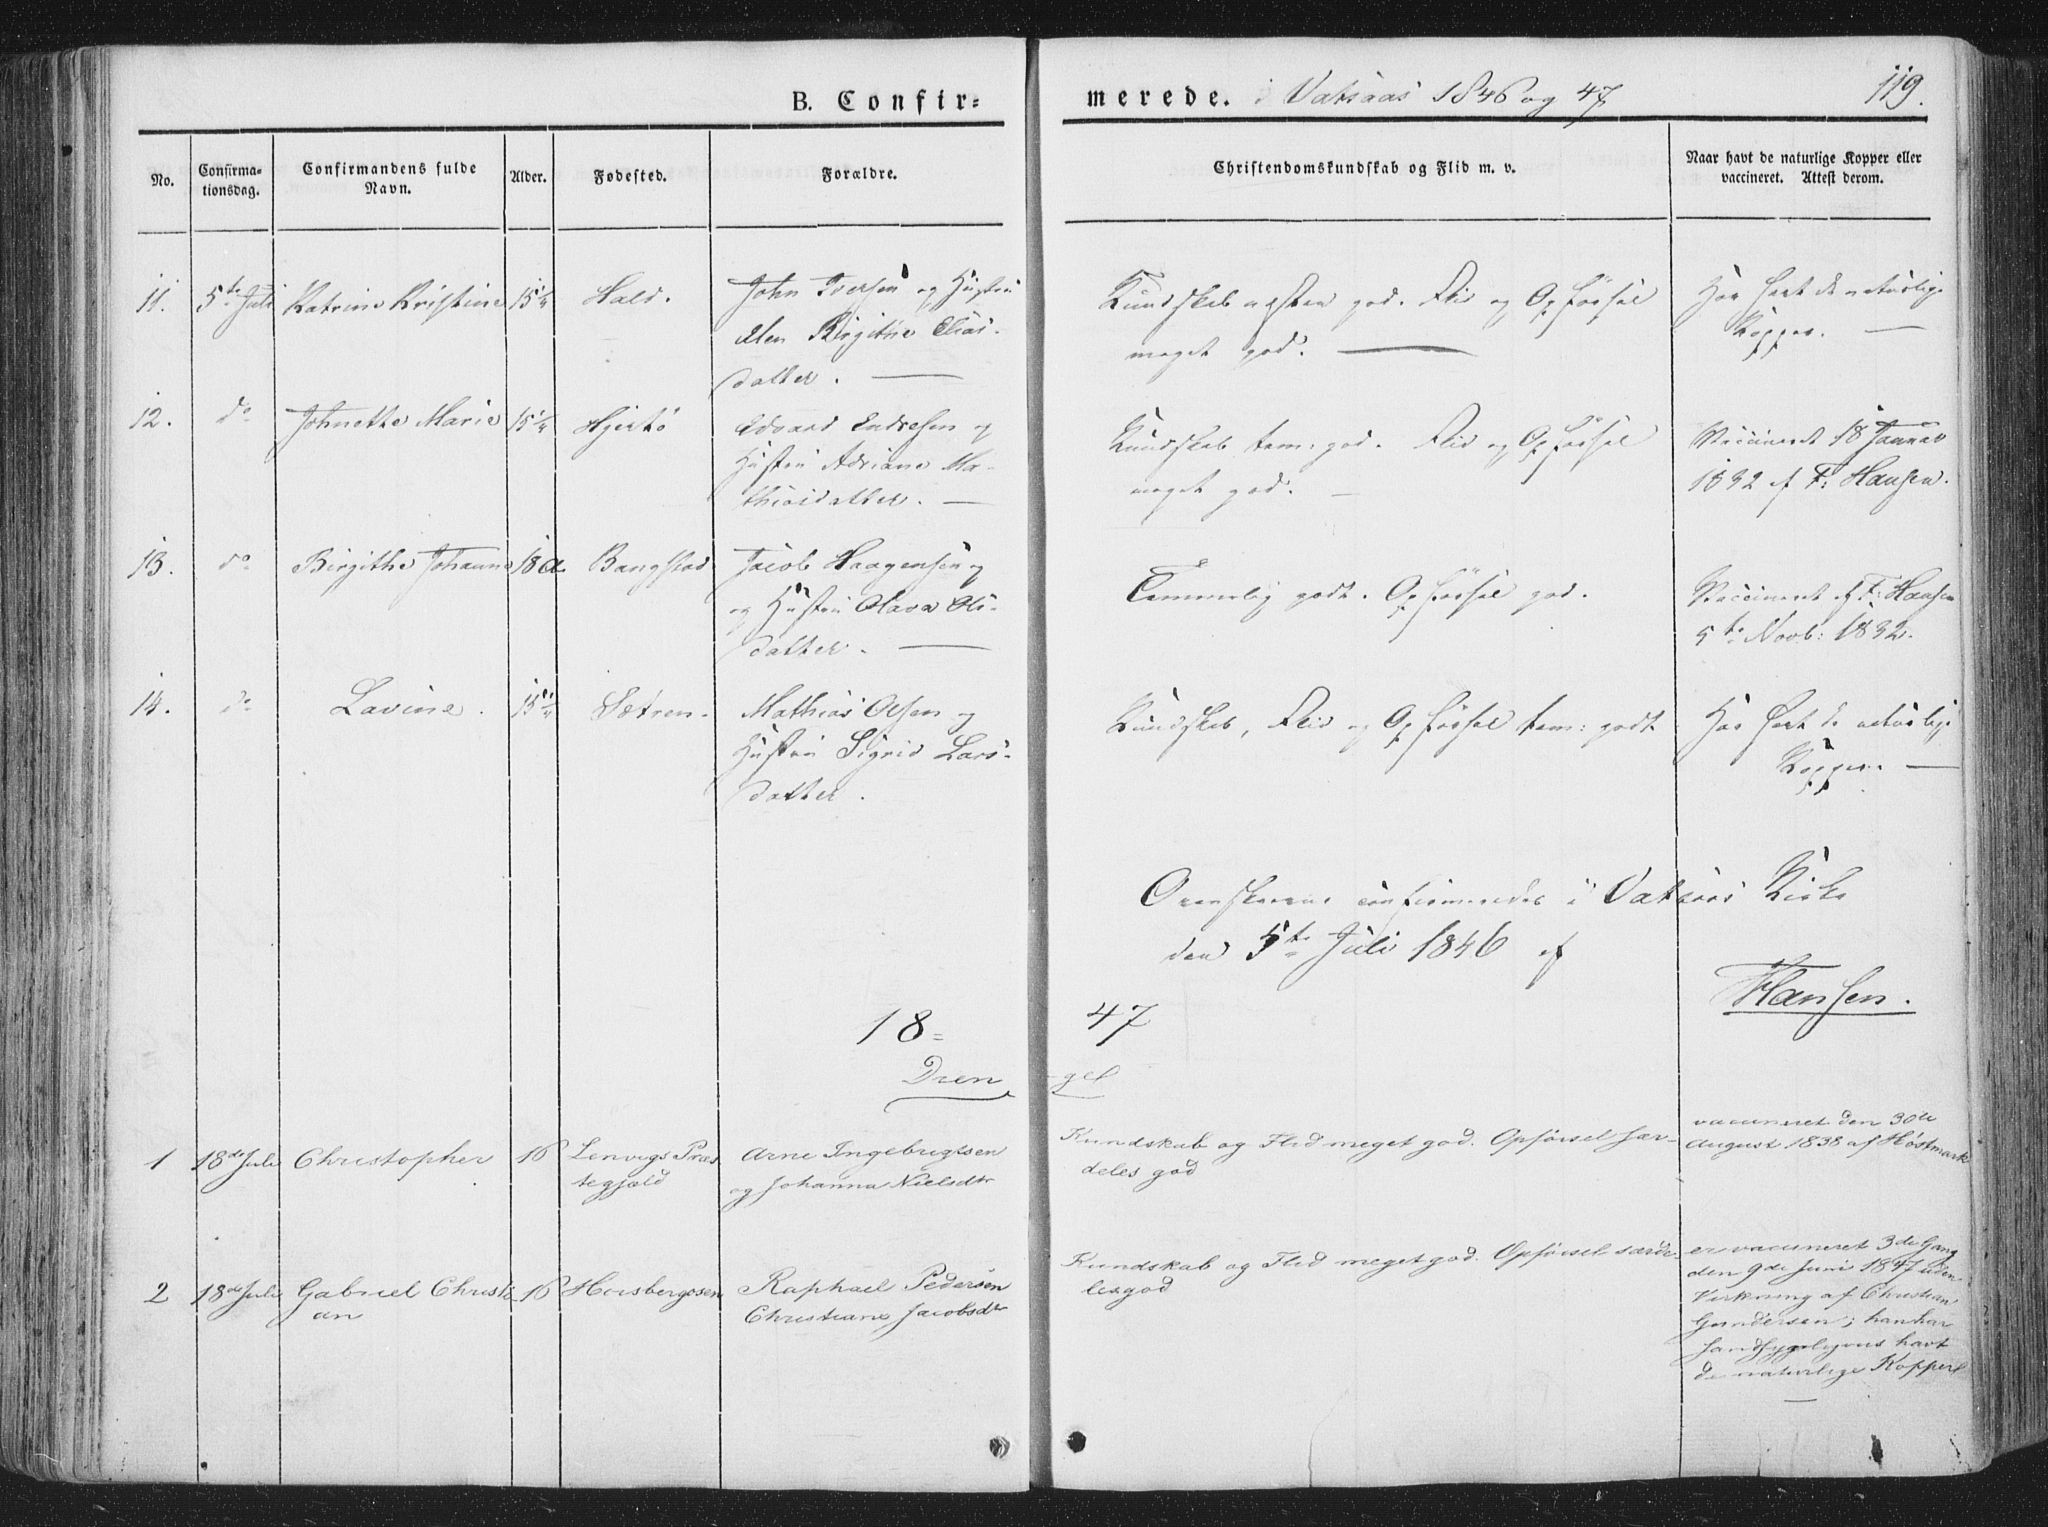 B. Confir=
merede. i Vatsaas 1846 og 47
119.
No.
Confirma-
tionsdag.
Confirmandens fulde
Navn.
Alder.
Fødested.
Forældre.
Christendomskundskab og Flid m. v.
Naar havt de naturlige Kopper eller
vaccineret. Attest derom.
11. 5te Juli Katrine Kristine 15¼ Hald.
John Iversen og Hustru
Elen Birgithe Elias-
datter.
Kundskab næsten god. Flid og Opførsel
meget god.
Har havt de naturlige
Kopper.
12. do Johnette Marie 15¼ Hjertø
Edvard Endresen og
Hustru Adriane Ma-
thiasdatter.
Kundskab tem: god. Flid og Opførsel
meget god.
Vaccineret 18 Januar
1832 af F: Hansen.
13. do Birgithe Johanne 18 Bangstad
Jacob Haagensen og
og Hustru Olava Ols-
datter.
Temmelig godt. Opførsel god.
Vaccineret af F: Hansen
5te Novb: 1832.
14. do Lavine. 15¼ Sætren.
Mathias Olsen og
Hustru Sigrid Lars-
datter.
Kundskab, Flid og Opførsel tem: godt
Har havt de naturlige
Kopper.
Ovenskrevne confirmeredes i Vatsaas Kirke
den 5te Juli 1846 af
Hansen.
18=
47
Dren
gel
1 18de Juli Christopher 16
Lenvigs Præs
tegjæld
Arne Ingebrigtsen
og Johanna Nielsdtr
Kundskab og Flid meget god. Opførsel sær-
deles god
vaccineret den 30te
August 1838 af Høstmark
2 18de Juli Gabriel Christi
an
16
Raphael Pedersen
Christiane Jacobsdtr
Kundskab og Flid meget god. Opførsel særde-
lesgod
er vaccineret 3de Gang
den 9de Juni 1847 uden
Virkning af Christian
Gundersen; han har
sandsynligviis havt
de naturlige Kopper